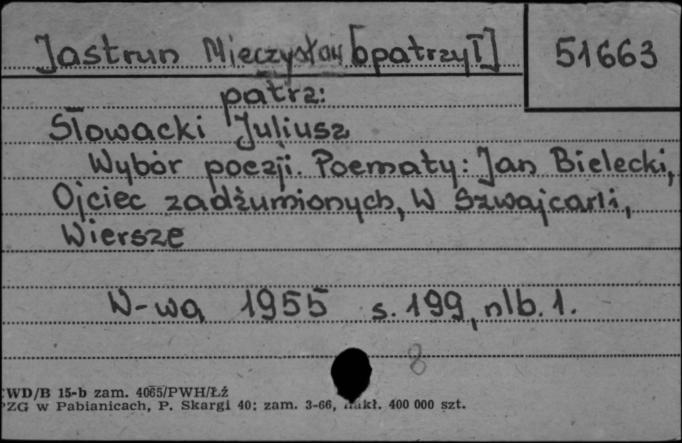 Jastrun Mieczysław [opatrzył] 51663
patrz:
Słowacki Juliusz
Wybór poezji. Poematy: Jan Bielecki,
Ojciec zadżumionych, W Szwajcarii,
Wiersze
W-wa 1955 s. 199, nlb. 1.
8
WD/B 15-b zam. 4065/PWH/Łź
PZG w Pabianicach, P. Skargi 40; zam. 3-66, nakł. 400 000 szt.